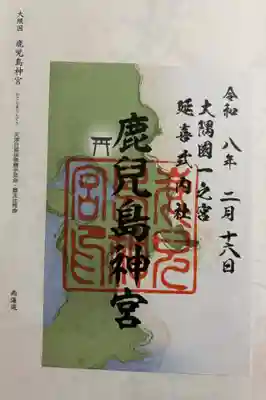 令和八年二月十六日
大隅國一之宮
延喜式内社
鹿兒島神宮
大隅国 鹿児島神宮
南海道